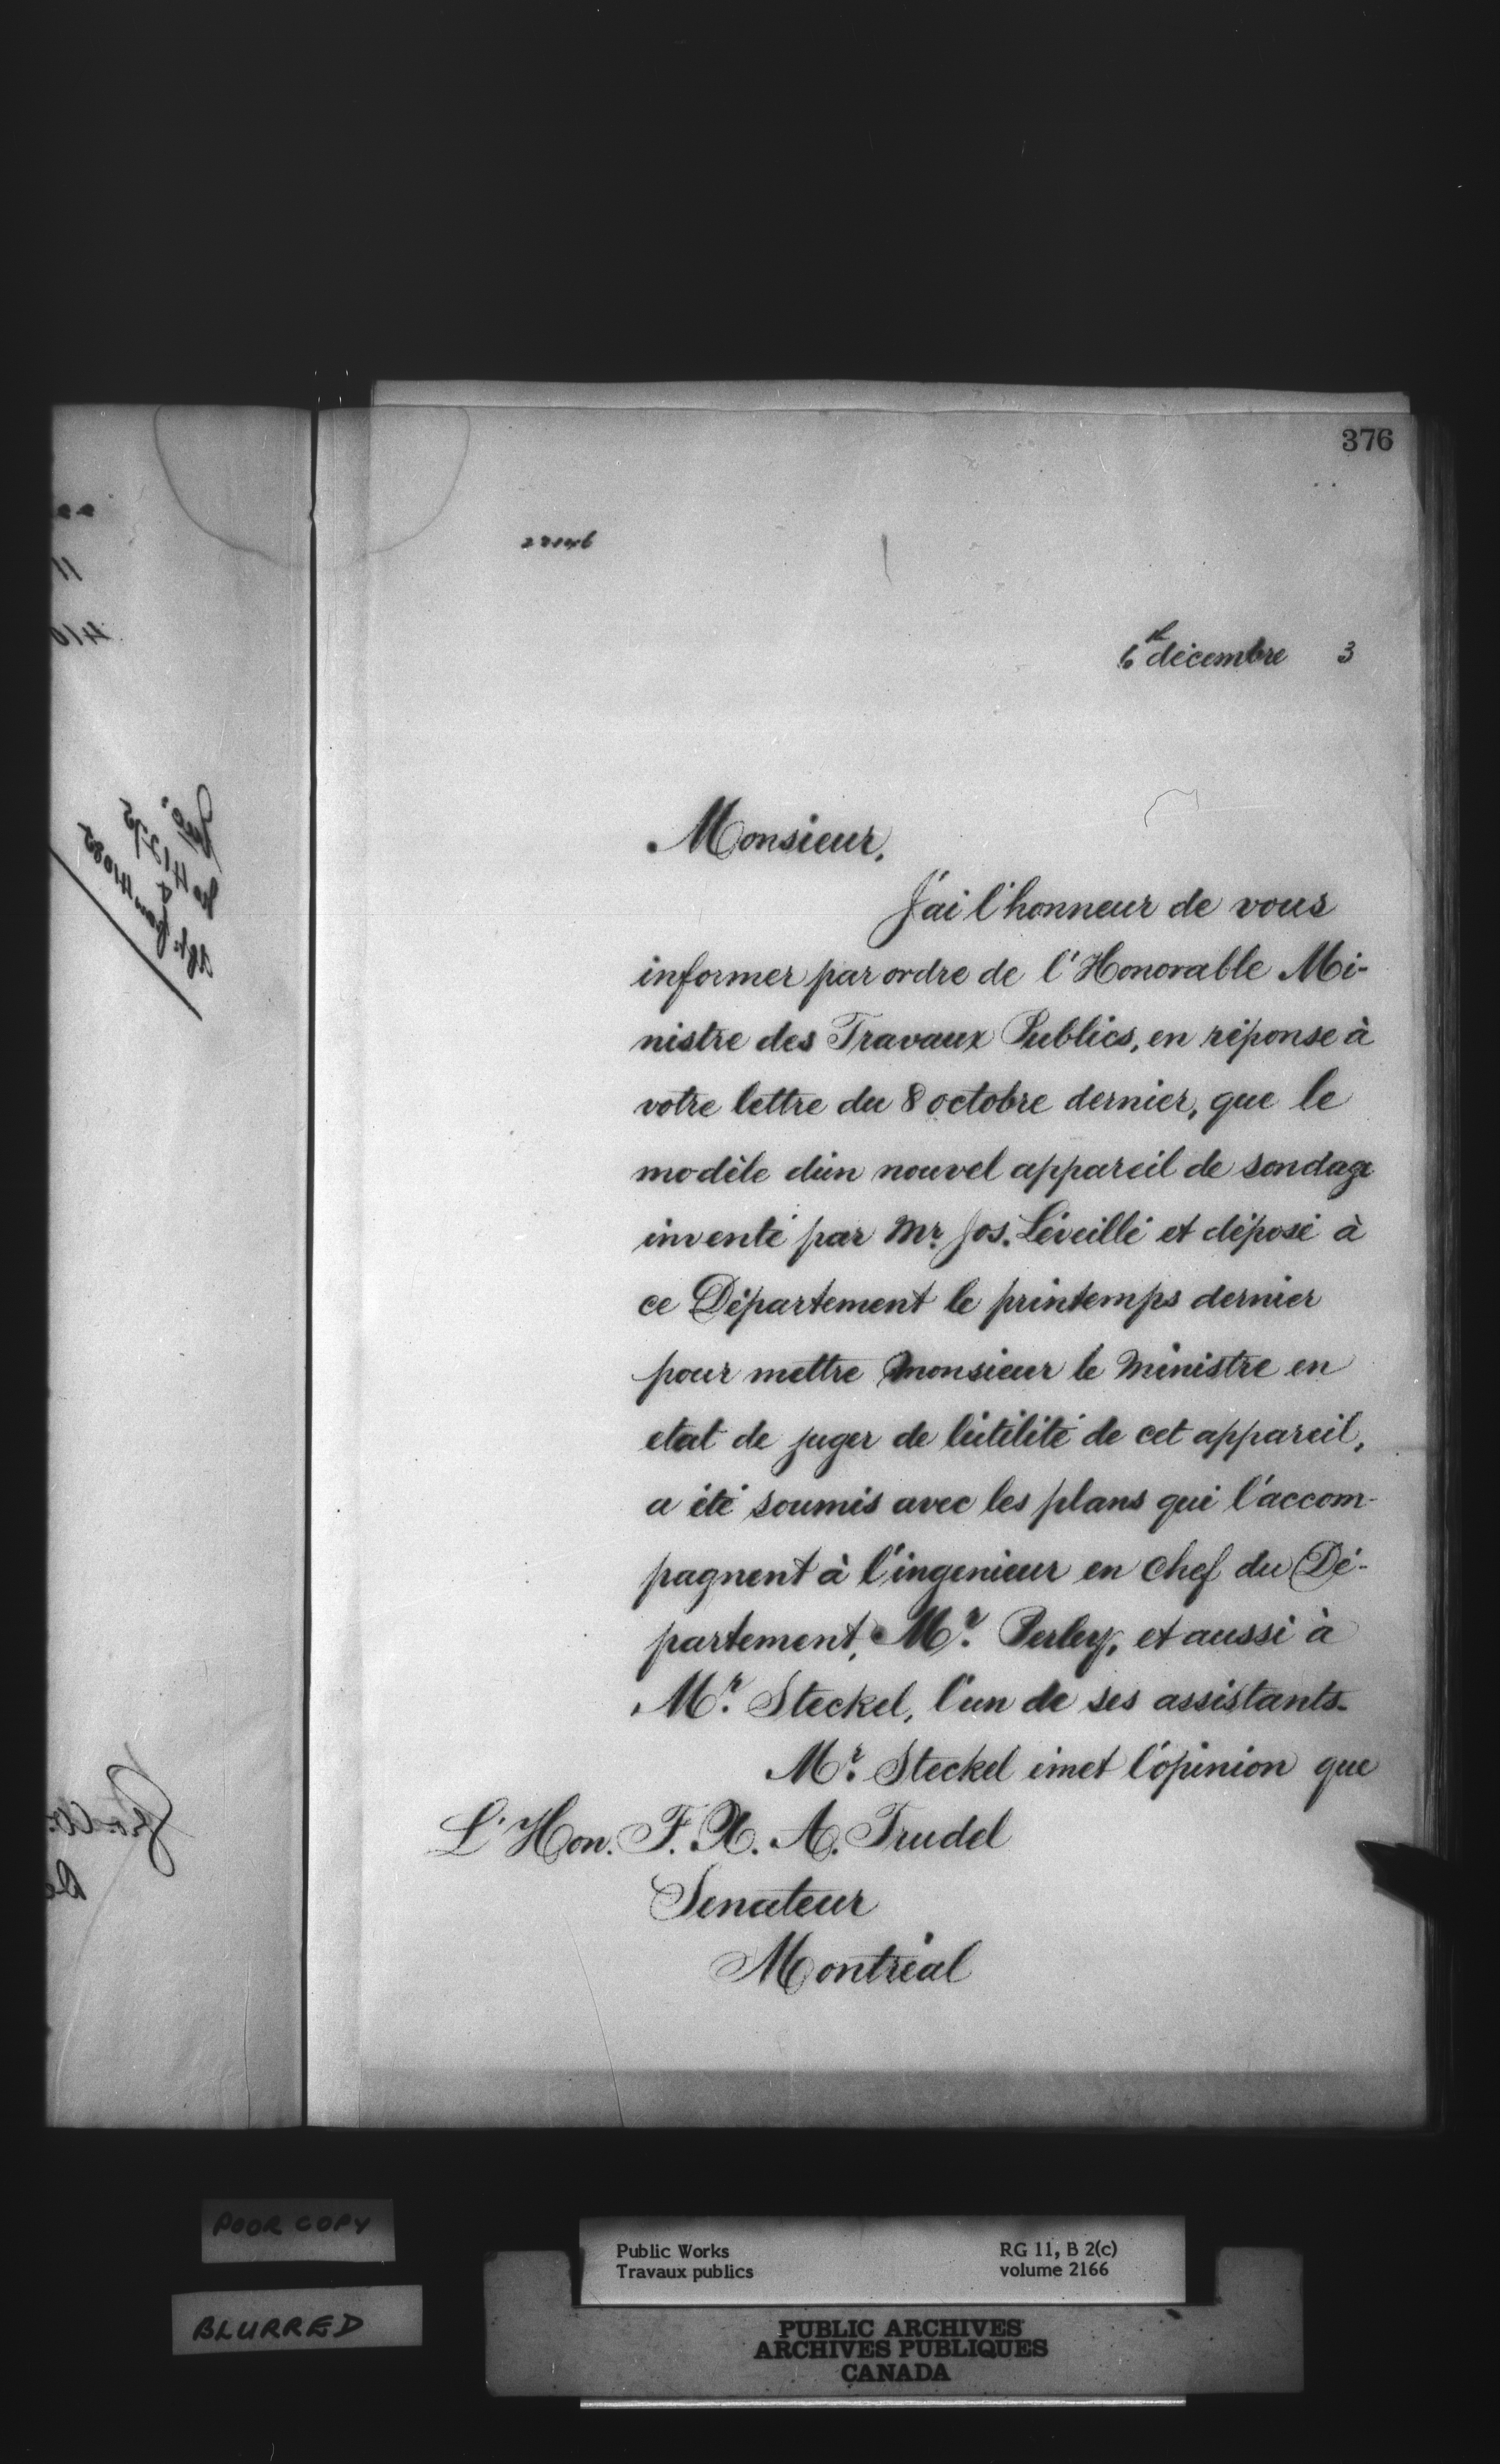 376
6 décembre 3
Monsieur,
J'ai l'honneur de vous
informer par ordre de l'Honorable Mi-
nistre des Travaux Publics, en réponse à
votre lettre du 8 octobre dernier, que le
modèle d'un nouvel appareil de sondage
inventé par Mr. Jos. Léveillé et déposé à
ce Département le printemps dernier
pour mettre Monsieur le Ministre en
etat de juger de l'utilité de cet appareil,
a été soumis avec les plans qui l'accom-
pagnent à l'ingenieur en chef du Dé-
partement, Mr. Perley, et aussi à
Mr. Steckel, l'un de ses assistants.
Mr. Steckel émet l'opinion que
L'Hon. F. X. A. Trudel
Senateur
Montréal
POOR COPY
BLURRED
Public Works RG 11, B 2(c)
Travaux publics volume 2166
PUBLIC ARCHIVES
ARCHIVES PUBLIQUES
CANADA